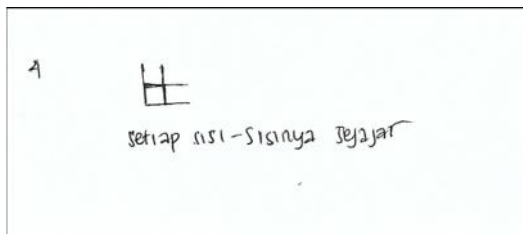 4
setiap sisi-sisinya sejajar